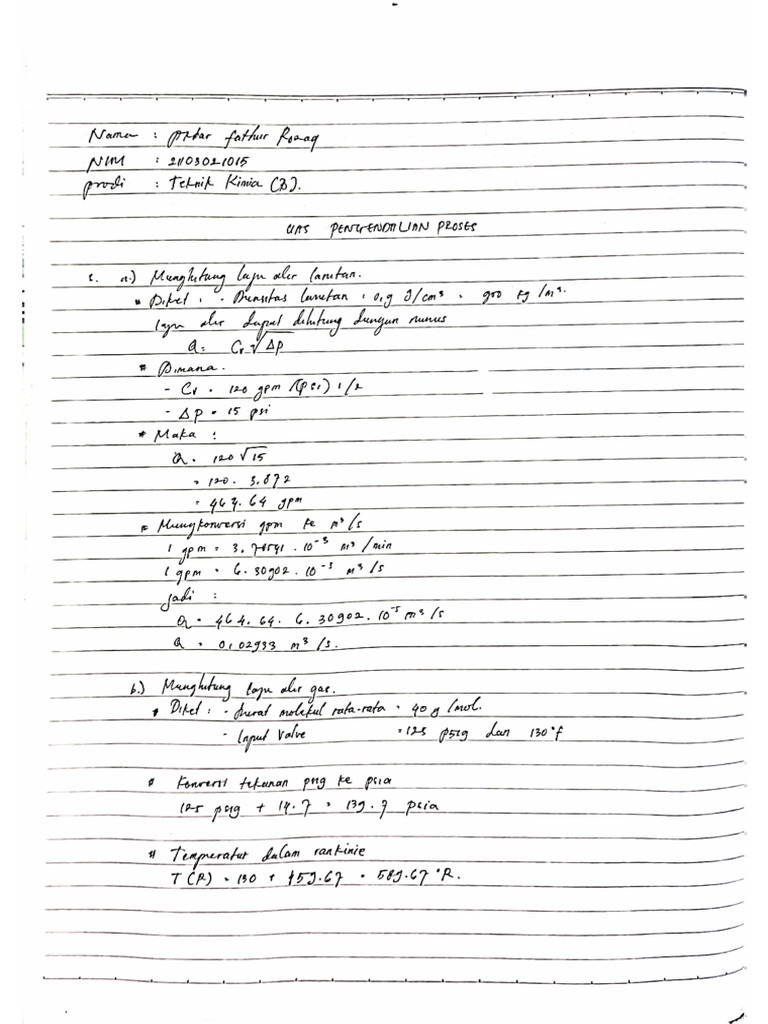 Nama : Akbar Fathur Rozaq
NIM : 2103021015
prodi : Teknik Kimia (B).
UAS PENGENDALIAN PROSES
1. a.) Menghitung laju alir larutan.
* Diket : - Densitas larutan : 0,9 g/cm³ = 900 kg/m³.
laju alir dapat dihitung dengan rumus
Q = Cv √Δp
* Dimana.
- Cv = 120 gpm /(psi) 1/2
- Δp = 15 psi
* Maka :
Q = 120 √15
= 120 . 3.872
= 464.64 gpm
* Mengkonversi gpm ke m³/s
1 gpm = 3.78541 . 10⁻³ m³/min
1 gpm = 6.30902 . 10⁻⁵ m³/s
jadi :
Q = 464.64 . 6.30902 . 10⁻⁵ m³/s
Q = 0,02933 m³/s.
b.) Menghitung laju alir gas.
* Diket : - Berat molekul rata-rata = 40 g/mol.
- Input Valve = 125 psig dan 130°F
* Konversi tekanan psig ke psia
125 psig + 14.7 = 139.7 psia
* Temperatur dalam rankinie
T (R) = 130 + 459.67 = 589.67 °R.